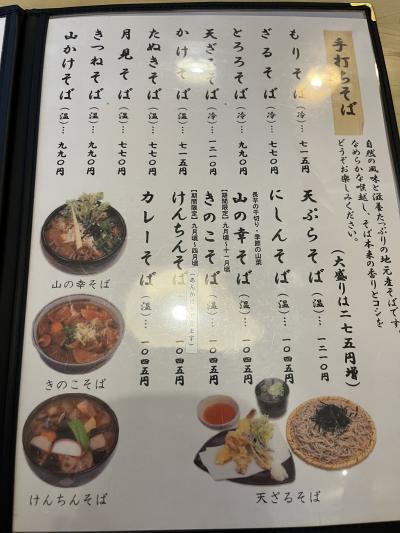 手打ちそば
自然の風味と滋養たっぷりの地元産そばです。
なめらかな喉越し、そば本来の香りとコシを
どうぞお楽しみください。
(大盛りは二七五円増)
もりそば(冷)…七一五円
ざるそば(冷)…七七〇円
とろろそば(冷)…九九〇円
天ざるそば(冷)…一二一〇円
かけそば(温)…七一五円
たぬきそば(温)…七七〇円
月見そば(温)…七七〇円
きつねそば(温)…九九〇円
山かけそば(温)…九九〇円
天ぷらそば(温)…一二一〇円
にしんそば(温)…一〇四五円
長芋の千切り・季節の山菜
山の幸そば(温)…九九〇円
【期間限定】九月頃~十一月頃
きのこそば(温)…一〇四五円
【期間限定】九月頃~四月頃
けんちんそば(温)…一〇四五円
カレーそば(温)…一〇四五円
山の幸そば
きのこそば
けんちんそば
天ざるそば